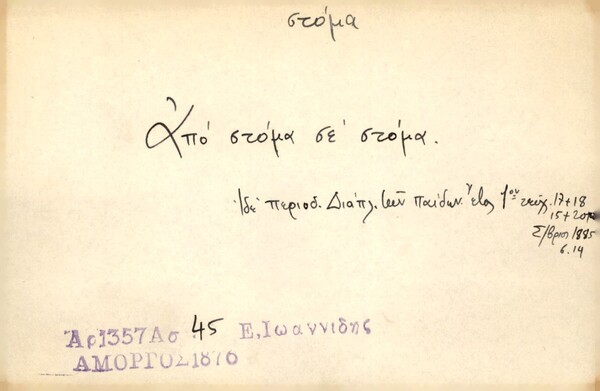 στόμα
Ἀπό στόμα σέ στόμα.
Ἰδέ περιοδ. Διάπλ. τῶν Παίδων. ἔτος 1ου τεύχ. 17+18
15+20
1885
σ. 14
Ἀρ1357Λσ 45 Ε,Ιωαννιδης
ΑΜΟΡΓΟΣ1876